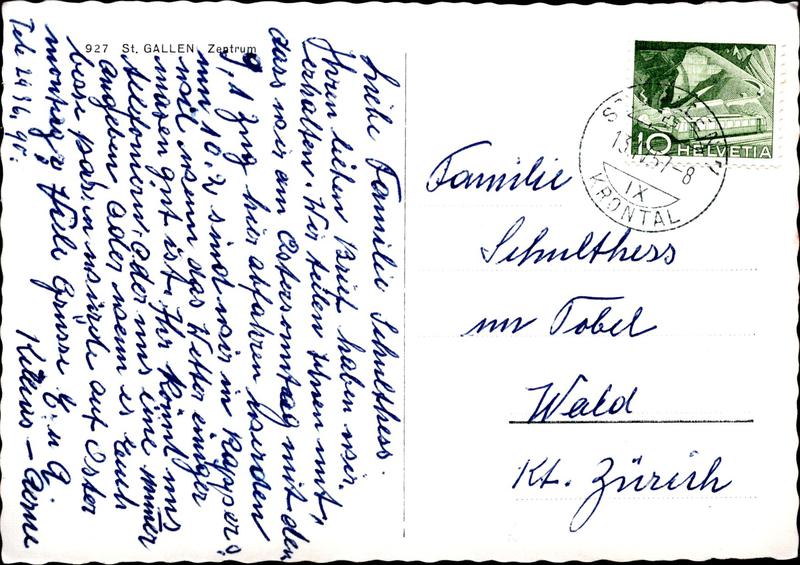 927 St. GALLEN Zentrum
Liebe Familie Schulthess.
Ihren lieben Brief haben wir
erhalten. Wir teilen Ihnen mit,
dass wir am Ostersonntag mit den
9,1 Zug hier abfahren werden
um 10.2 sind wir in Rappers.
weil wenn das Wetter einiger
masen gut ist. Ihr könnt uns
telefonieren, oder uns eine
angeben oder wenn es Euch
besse passen würde auf Oster
montag. Viele Grüsse E. u. A.
Tele 24 36 90.
HELVETIA
10
13. IV. 57-8
IX
KRONTAL
Familie
Schulthess
im Tobel
Wald
Kt. Zürich